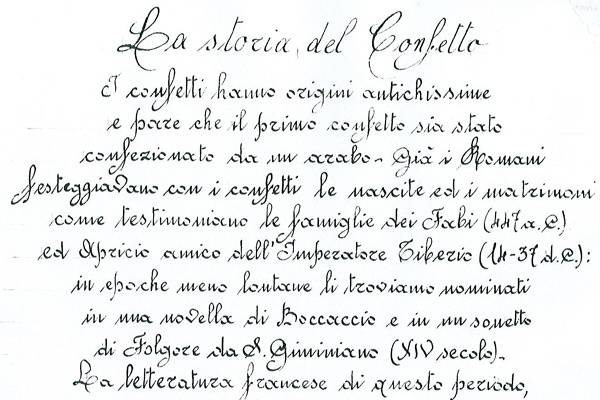 La storia del Confetto
I confetti hanno origini antichissime
e pare che il primo confetto sia stato
confezionato da un arabo- Già i Romani
festeggiavano con i confetti le nascite ed i matrimoni
come testimoniano le famiglie dei Fabi (447 a.C.)
ed Apricio amico dell'Imperatore Tiberio (14-37 d.C.):
in epoche meno lontane li troviamo nominati
in una novella di Boccaccio e in un sonetto
di Folgore da S. Giminiano (XIV secolo)-
La letteratura francese di questo periodo,